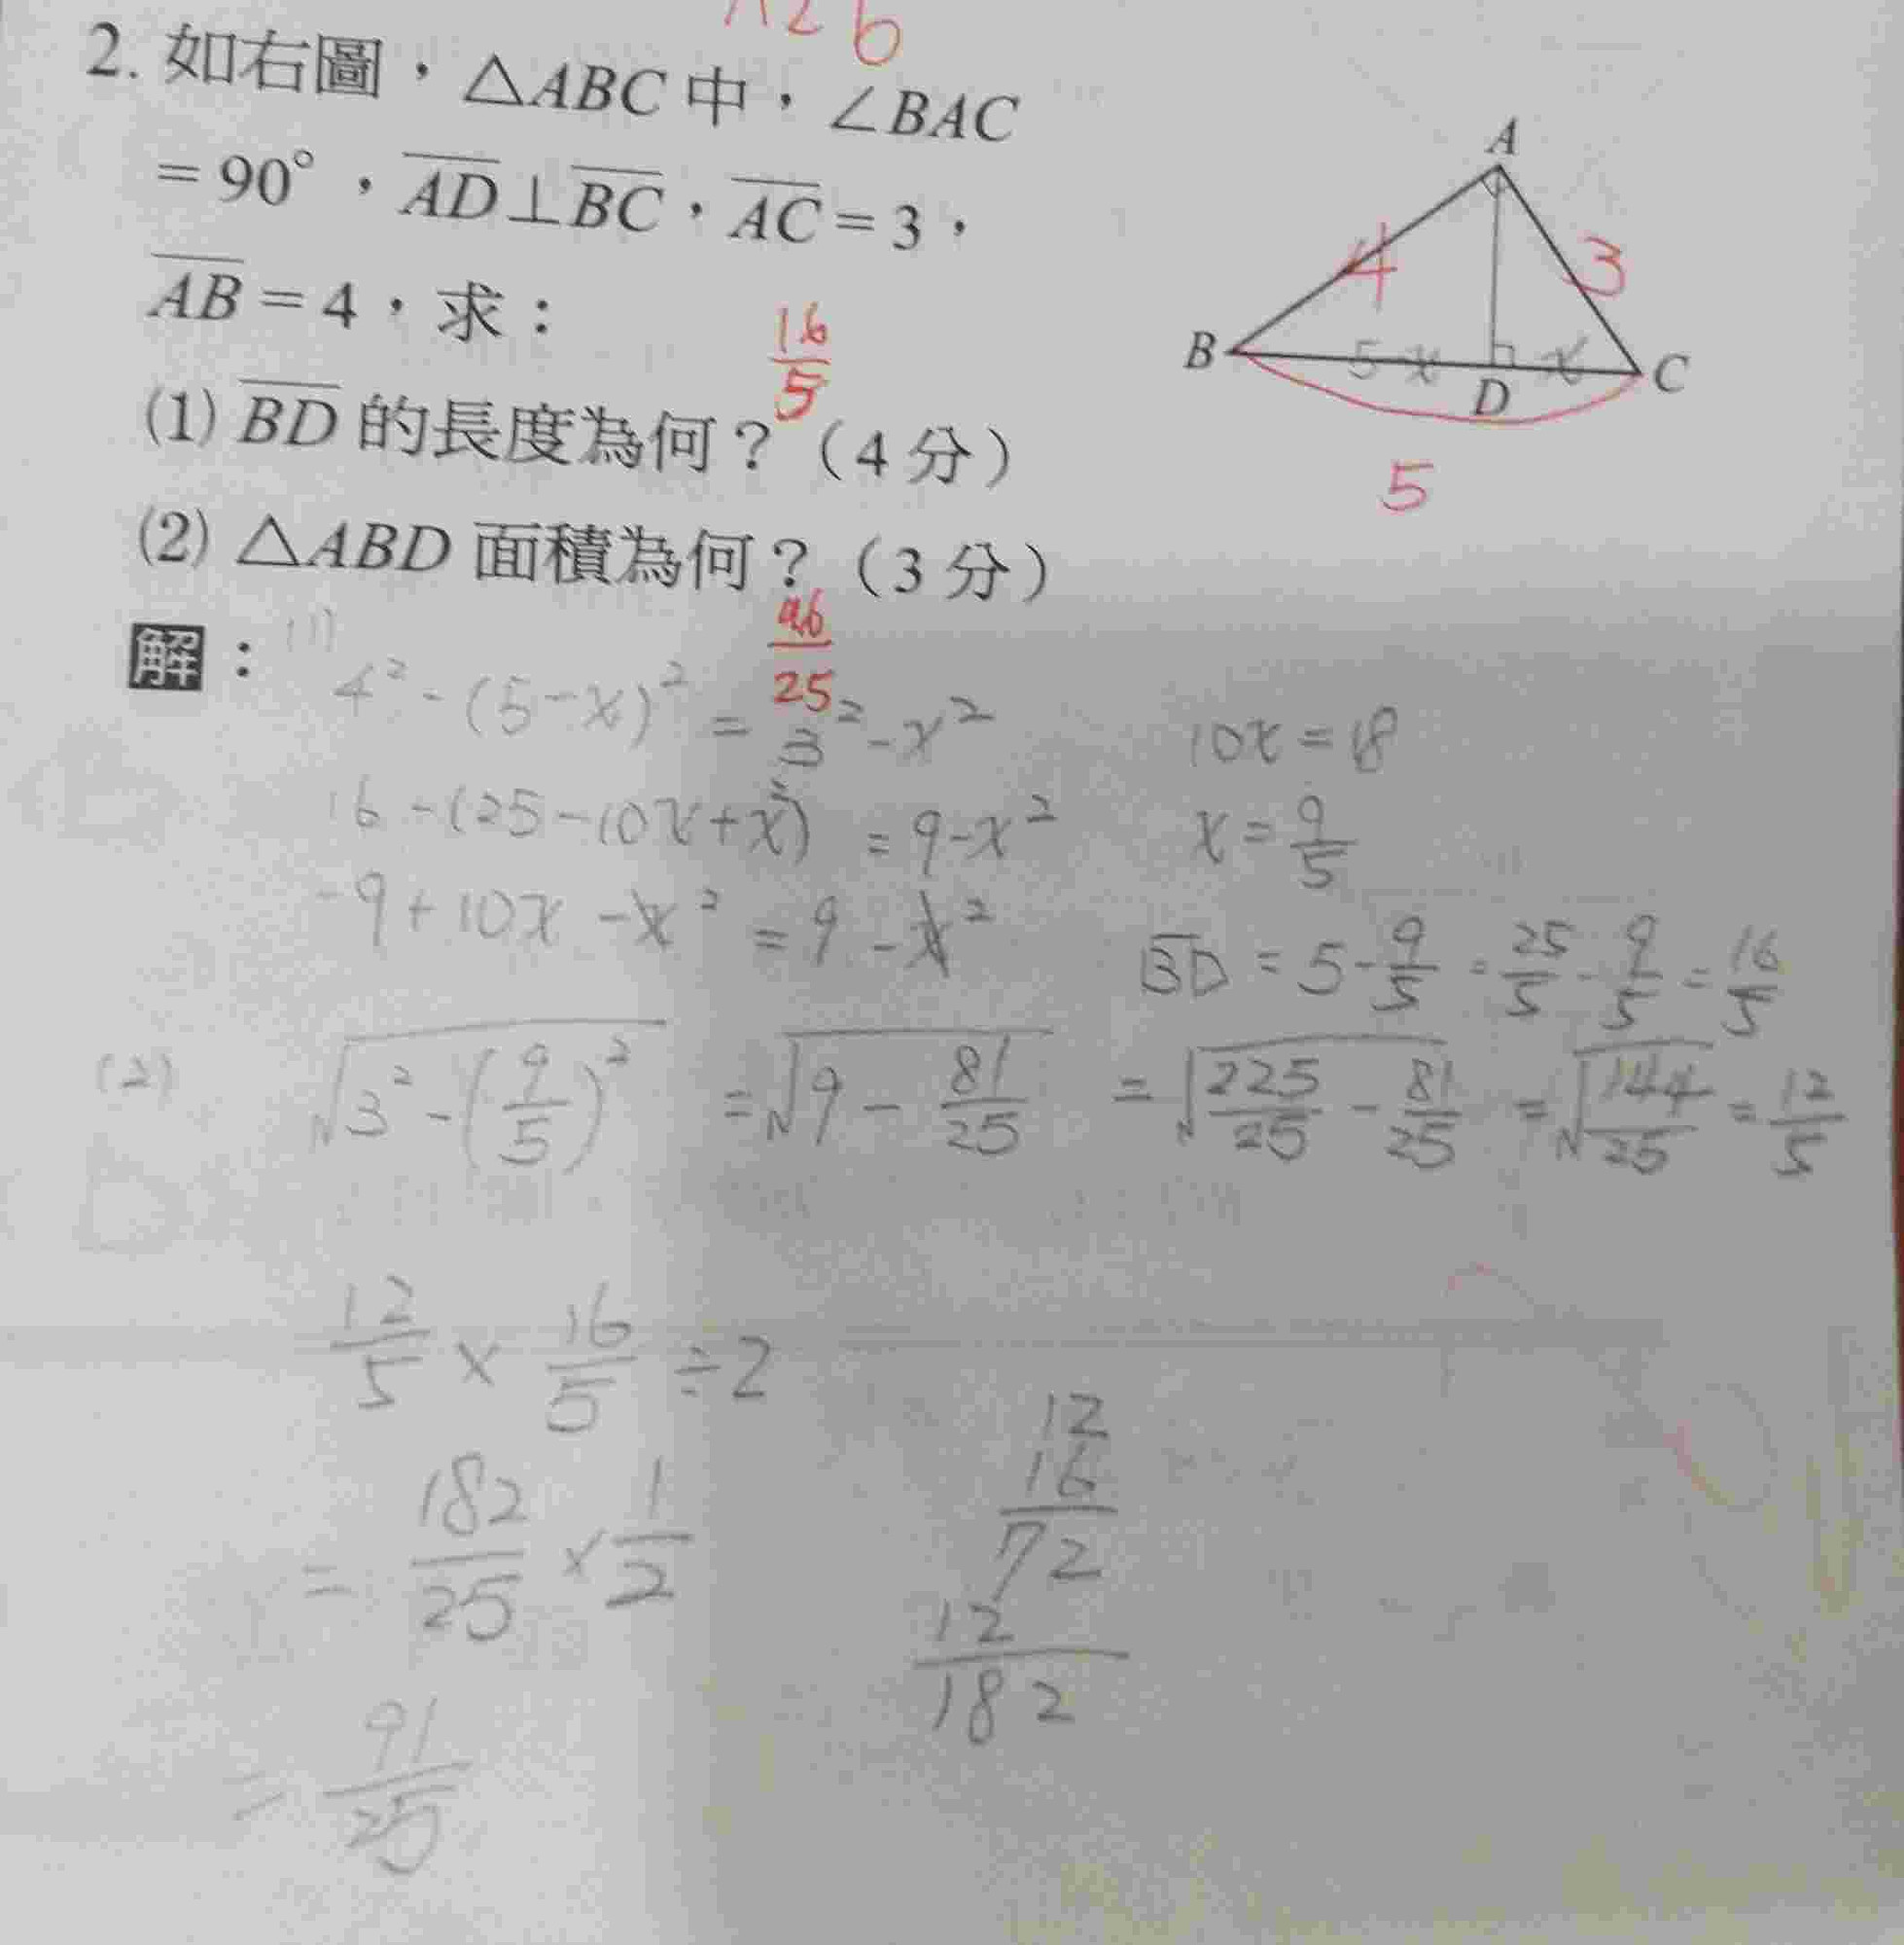 2. 如右圖，△ABC 中，∠BAC
= 90°，AD⊥BC，AC = 3，
AB = 4，求：
16/5
(1) BD 的長度為何？（4 分）
(2) △ABD 面積為何？（3 分）
96/25
A
4
3
B
5-x
x
D
C
5
解：(1)
4² - (5-x)² = 3² - x²
16 - (25 - 10x + x²) = 9 - x²
-9 + 10x - x² = 9 - x²
10x = 18
x = 9/5
BD = 5 - 9/5 = 25/5 - 9/5 = 16/5
(2) √(3² - (9/5)²) = √(9 - 81/25) = √(225/25 - 81/25) = √(144/25) = 12/5
12/5 × 16/5 ÷ 2
= 182/25 × 1/2
= 91/25
12
16
72
12
182